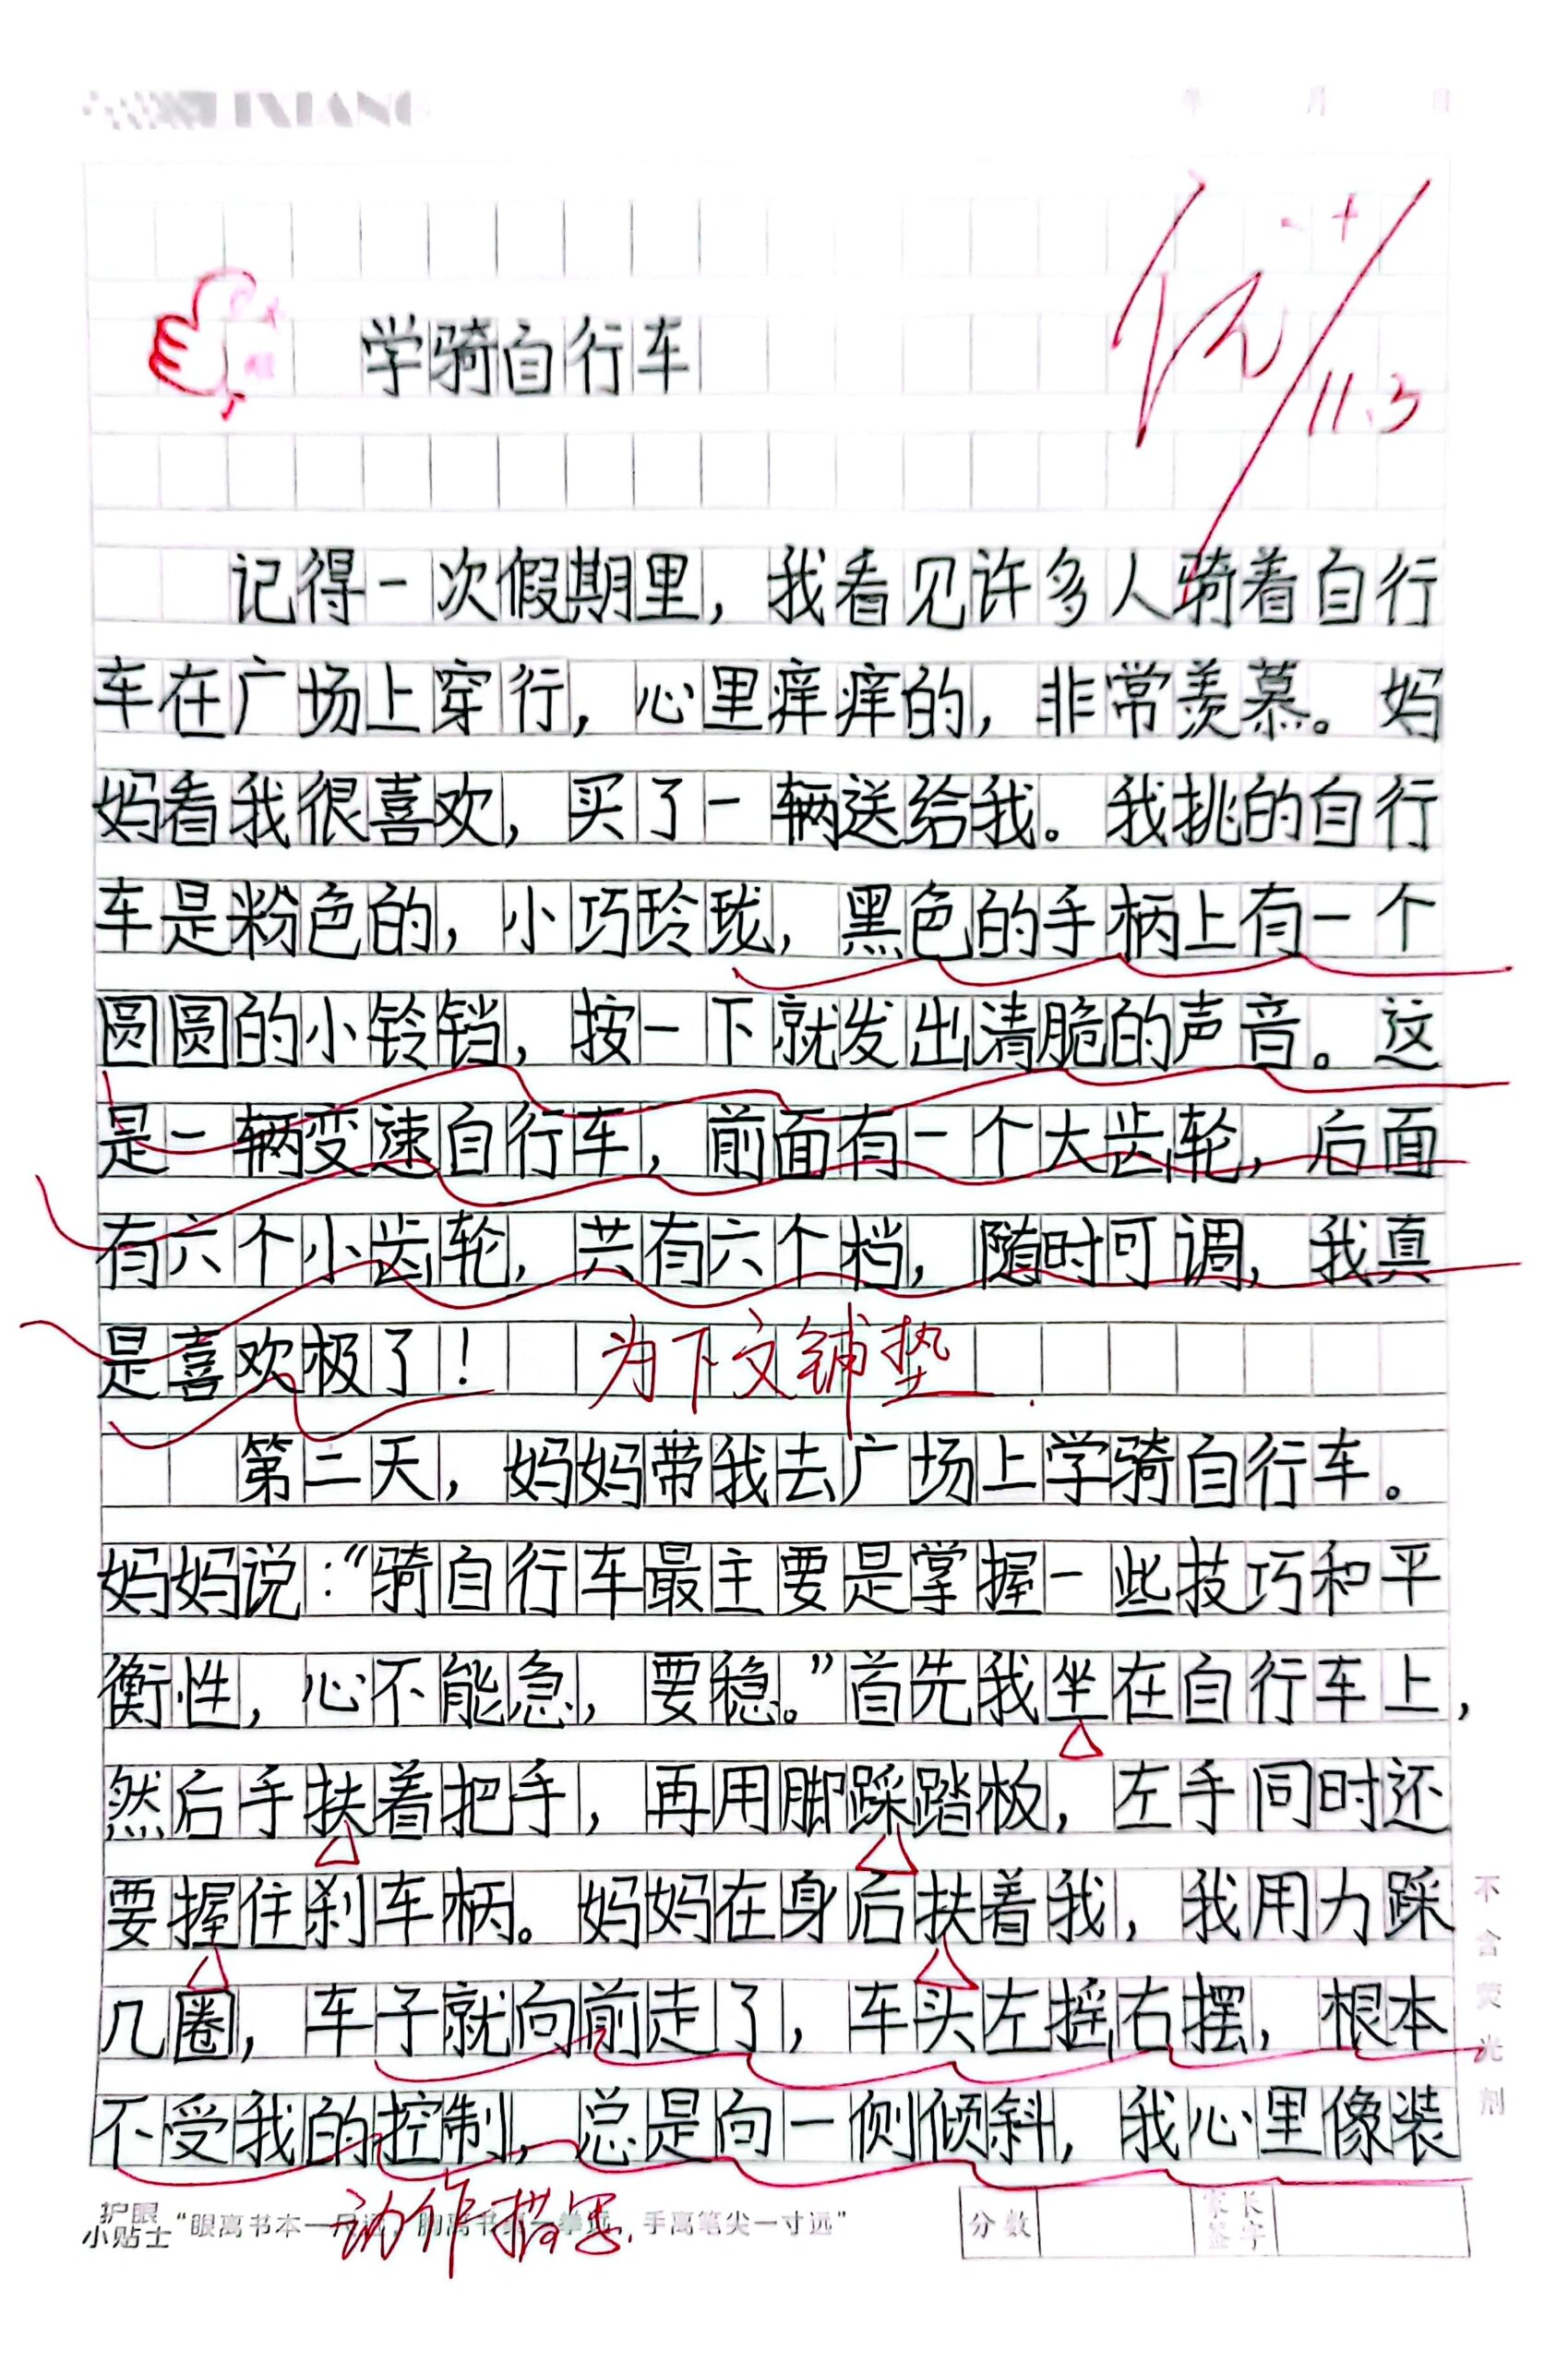 IXIANG
年 月 日
优+
11.3
学骑自行车
记得一次假期里，我看见许多人骑着自行
车在广场上穿行，心里痒痒的，非常羡慕。妈
妈看我很喜欢，买了一辆送给我。我挑的自行
车是粉色的，小巧玲珑，黑色的手柄上有一个
圆圆的小铃铛，按一下就发出清脆的声音。这
是一辆变速自行车，前面有一个大齿轮，后面
有六个小齿轮，共有六个档，随时可调，我真
是喜欢极了！
为下文铺垫
第二天，妈妈带我去广场上学骑自行车。
妈妈说：“骑自行车最主要是掌握一些技巧和平
衡性，心不能急，要稳。”首先我坐在自行车上，
然后手扶着把手，再用脚踩踏板，左手同时还
要握住刹车柄。妈妈在身后扶着我，我用力踩
几圈，车子就向前走了，车头左摇右摆，根本
不受我的控制，总是向一侧倾斜，我心里像装
动作描写
不含荧光剂
护眼小贴士
“眼离书本一尺远，胸离书桌一拳远，手离笔尖一寸远”
分数
家长签字